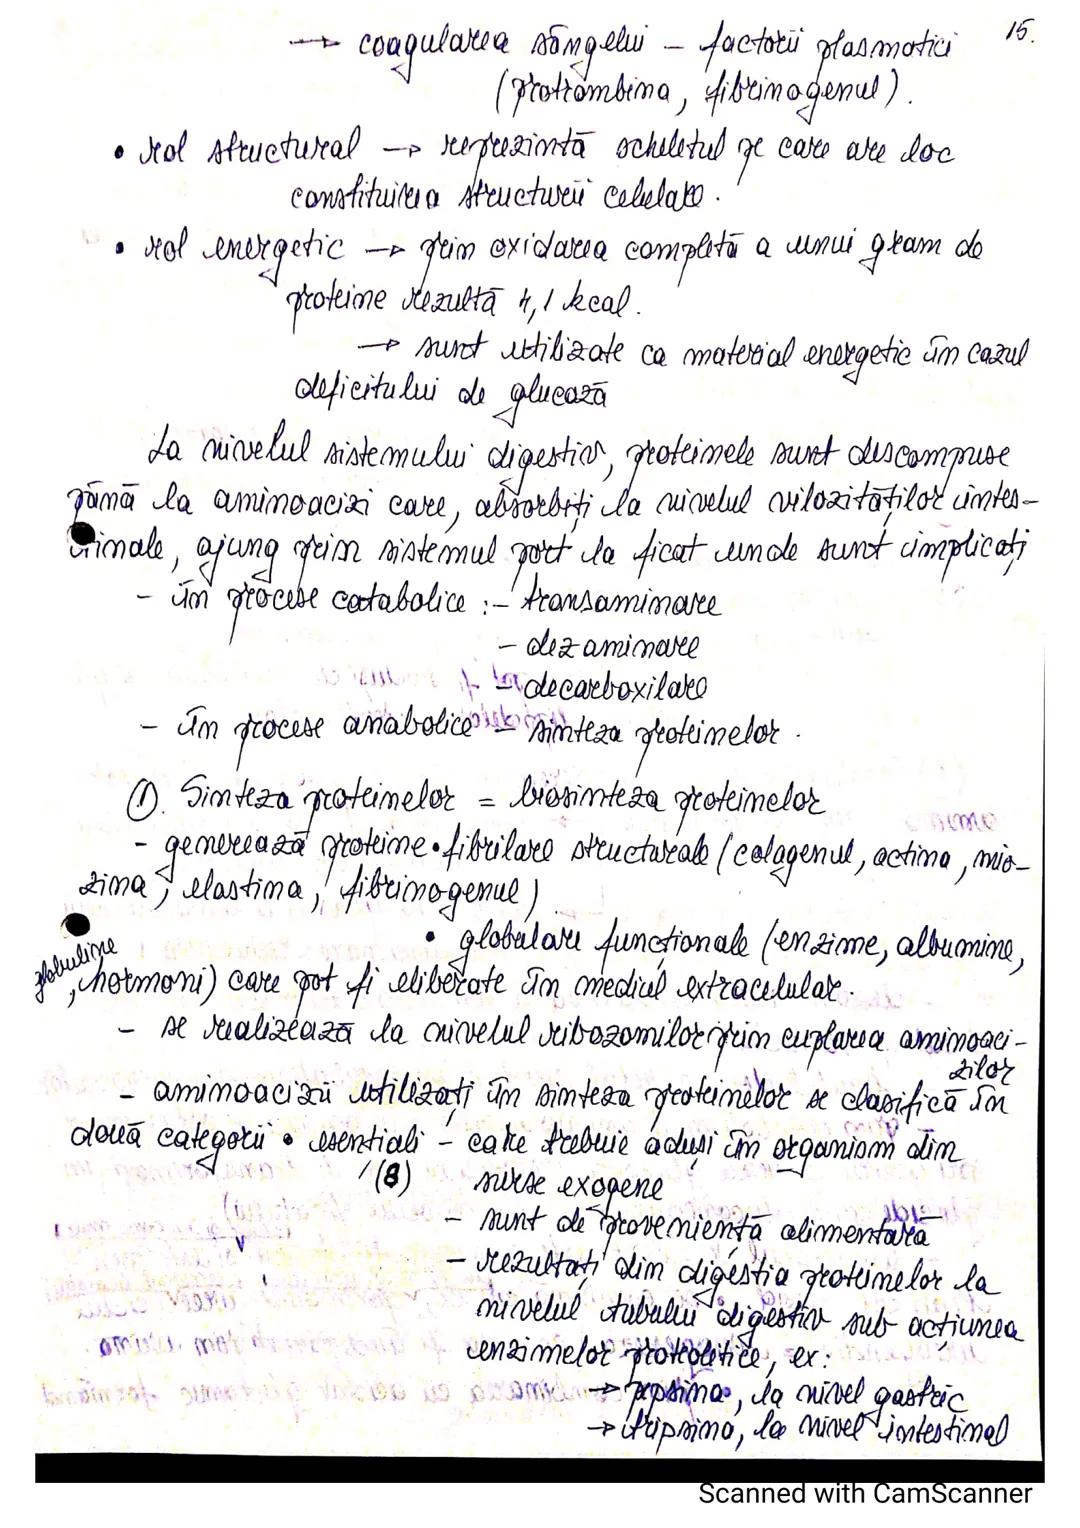 15.
→ coagularea sângelui – factorii plasmatici
(protrombina, fibrinogenul).
• rol structural → reprezintă scheletul pe care are loc
constituirea structurii celulare.
• rol energetic → prin oxidarea completă a unui gram de
proteine rezultă 4,1 kcal.
→ sunt utilizate ca material energetic în cazul
deficitului de glucoză
La nivelul sistemului digestiv, proteinele sunt descompuse
până la aminoacizi care, absorbiți la nivelul vilozităților intes-
tinale, ajung prin sistemul port la ficat unde sunt implicați
- în procese catabolice :- transaminare
- dezaminare
- decarboxilare
- în procese anabolice – sinteza proteinelor.
①. Sinteza proteinelor = biosinteza proteinelor
- generează proteine • fibrilare structurale (colagenul, actina, mio-
zina, elastina, fibrinogenul)
• globulare funcționale (enzime, albumine,
globuline
, hormoni) care pot fi eliberate în mediul extracelular.
- se realizează la nivelul ribozomilor prin cuplarea aminoaci-
zilor
- aminoacizii utilizați în sinteza proteinelor se clasifică în
două categorii • esențiali – care trebuie aduși în organism din
(8) surse exogene
- sunt de proveniență alimentară
- rezultați din digestia proteinelor la
nivelul tubului digestiv sub acțiunea
enzimelor proteolitice, ex:
→ pepsina, la nivel gastric
→ tripsina, la nivel intestinal
Scanned with CamScanner